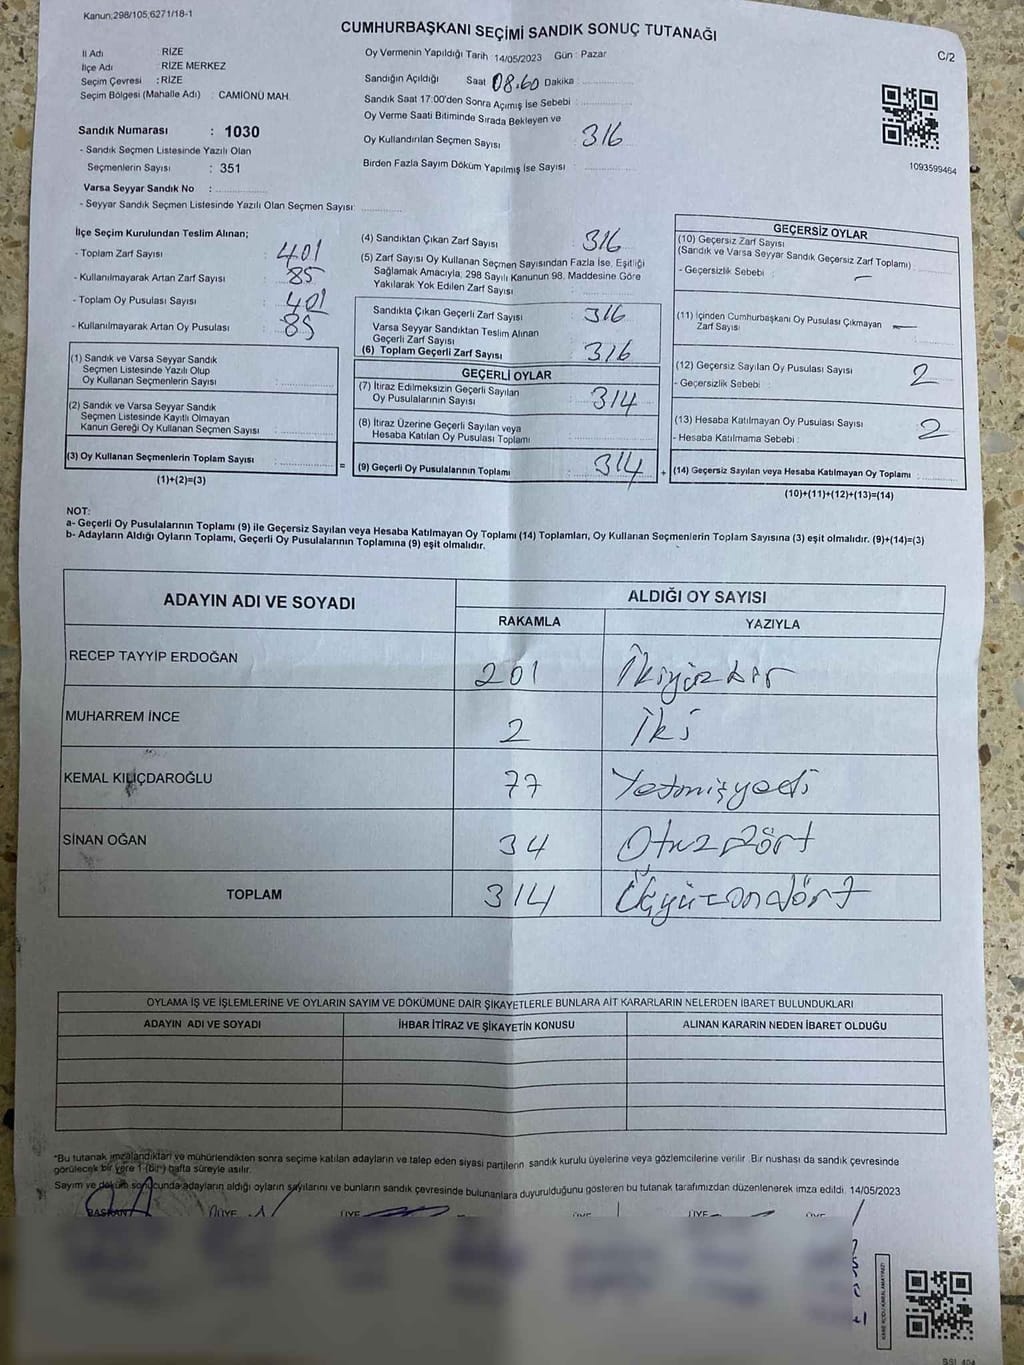 Kanun;298/105;6271/18-1
CUMHURBAŞKANI SEÇİMİ SANDIK SONUÇ TUTANAĞI
C/2
İl Adı : RİZE
İlçe Adı : RİZE MERKEZ
Seçim Çevresi : RİZE
Seçim Bölgesi (Mahalle Adı) : CAMİÖNÜ MAH.
Oy Vermenin Yapıldığı Tarih 14/05/2023 Gün : Pazar
Sandığın Açıldığı Saat 08.60 Dakika :
Sandık Saat 17:00'den Sonra Açımış İse Sebebi :
Oy Verme Saati Bitiminde Sırada Bekleyen ve
Oy Kullandırılan Seçmen Sayısı : 316
Birden Fazla Sayım Döküm Yapılmış İse Sayısı :
1093599464
Sandık Numarası : 1030
- Sandık Seçmen Listesinde Yazılı Olan
Seçmenlerin Sayısı : 351
Varsa Seyyar Sandık No :
- Seyyar Sandık Seçmen Listesinde Yazılı Olan Seçmen Sayısı:
İlçe Seçim Kurulundan Teslim Alınan;
- Toplam Zarf Sayısı : 401
- Kullanılmayarak Artan Zarf Sayısı : 85
- Toplam Oy Pusulası Sayısı : 401
- Kullanılmayarak Artan Oy Pusulası : 85
(1) Sandık ve Varsa Seyyar Sandık
Seçmen Listesinde Yazılı Olup
Oy Kullanan Seçmenlerin Sayısı :
(2) Sandık ve Varsa Seyyar Sandık
Seçmen Listesinde Kayıtlı Olmayan
Kanun Gereği Oy Kullanan Seçmen Sayısı :
(3) Oy Kullanan Seçmenlerin Toplam Sayısı :
(1)+(2)=(3)
=
(4) Sandıktan Çıkan Zarf Sayısı : 316
(5) Zarf Sayısı Oy Kullanan Seçmen Sayısından Fazla İse, Eşitliği
Sağlamak Amacıyla, 298 Sayılı Kanunun 98. Maddesine Göre
Yakılarak Yok Edilen Zarf Sayısı :
Sandıkta Çıkan Geçerli Zarf Sayısı : 316
Varsa Seyyar Sandıktan Teslim Alınan
Geçerli Zarf Sayısı :
(6) Toplam Geçerli Zarf Sayısı : 316
GEÇERLİ OYLAR
(7) İtiraz Edilmeksizin Geçerli Sayılan
Oy Pusulalarının Sayısı : 314
(8) İtiraz Üzerine Geçerli Sayılan veya
Hesaba Katılan Oy Pusulası Toplamı :
(9) Geçerli Oy Pusulalarının Toplamı : 314
+
GEÇERSİZ OYLAR
(10) Geçersiz Zarf Sayısı
(Sandık ve Varsa Seyyar Sandık Geçersiz Zarf Toplamı) :
- Geçersizlik Sebebi : –
(11) İçinden Cumhurbaşkanı Oy Pusulası Çıkmayan
Zarf Sayısı : –
(12) Geçersiz Sayılan Oy Pusulası Sayısı : 2
- Geçersizlik Sebebi :
(13) Hesaba Katılmayan Oy Pusulası Sayısı : 2
- Hesaba Katılmama Sebebi :
(14) Geçersiz Sayılan veya Hesaba Katılmayan Oy Toplamı :
(10)+(11)+(12)+(13)=(14)
NOT:
a- Geçerli Oy Pusulalarının Toplamı (9) ile Geçersiz Sayılan veya Hesaba Katılmayan Oy Toplamı (14) Toplamları, Oy Kullanan Seçmenlerin Toplam Sayısına (3) eşit olmalıdır. (9)+(14)=(3)
b- Adayların Aldığı Oyların Toplamı, Geçerli Oy Pusulalarının Toplamına (9) eşit olmalıdır.
ADAYIN ADI VE SOYADI
ALDIĞI OY SAYISI
RAKAMLA YAZIYLA
RECEP TAYYİP ERDOĞAN 201 İkiyüzbir
MUHARREM İNCE 2 İki
KEMAL KILIÇDAROĞLU 77 Yetmişyedi
SİNAN OĞAN 34 Otuzdört
TOPLAM 314 Üçyüzondört
OYLAMA İŞ VE İŞLEMLERİNE VE OYLARIN SAYIM VE DÖKÜMÜNE DAİR ŞİKAYETLERLE BUNLARA AİT KARARLARIN NELERDEN İBARET BULUNDUKLARI
ADAYIN ADI VE SOYADI İHBAR İTİRAZ VE ŞİKAYETİN KONUSU ALINAN KARARIN NEDEN İBARET OLDUĞU
*Bu tutanak imzalandıktan ve mühürlendikten sonra seçime katılan adayların ve talep eden siyasi partilerin sandık kurulu üyelerine veya gözlemcilerine verilir. Bir nushası da sandık çevresinde
görülecek bir yere 1 (bir) hafta süreyle asılır.
Sayım ve döküm sonucunda adayların aldığı oyların sayılarını ve bunların sandık çevresinde bulunanlara duyurulduğunu gösteren bu tutanak tarafımızdan düzenlenerek imza edildi. 14/05/2023
BAŞKAN ÜYE ÜYE ÜYE ÜYE ÜYE
KARE KODU KARALAMAYINIZ!